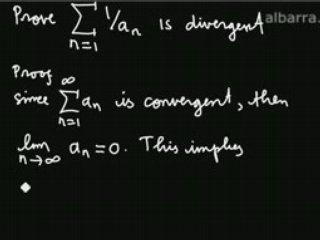 Prove ∑ 1/aₙ is divergent
n=1
albarra.
Proof
since ∑ aₙ is convergent, then
∞
n=1
lim aₙ = 0. This implies
n→∞